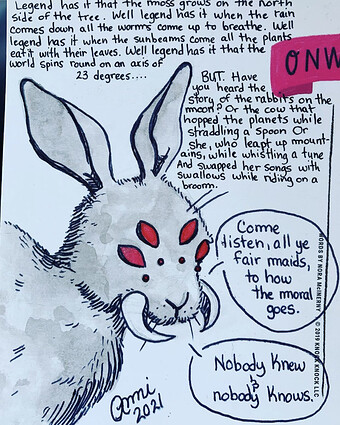 Legend has it that the moss grows on the north
side of the tree. Well legend has it when the rain
comes down all the worms come up to breathe. Well
legend has it when the sunbeams come all the plants
eat it with their leaves. Well legend has it that the
world spins round on an axis of
23 degrees....
ONW
BUT. Have
you heard the
story of the rabbits on the
moon? Or the cow that
hopped the planets while
straddling a spoon Or
she, who leapt up mount-
ains, while whistling a tune
And swapped her songs with
swallows while riding on a
broom.
Come
listen, all ye
fair maids,
to how
the moral
goes.
Nobody Knew
&
nobody Knows.
WORDS BY NORA McINERNY © 2019 KNOCK KNOCK LLC
2021